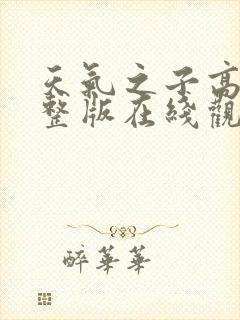 天氣之子高
整版在綫觀
醉華華